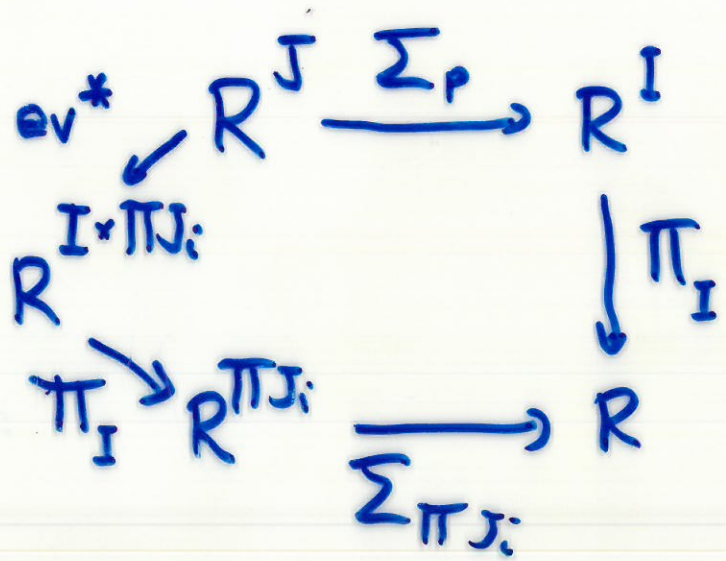 ev* R^J Σ_p R^I
R^{I×ΠJ_i} Π_I
Π_I R^{ΠJ_i} R
Σ_{ΠJ_i}